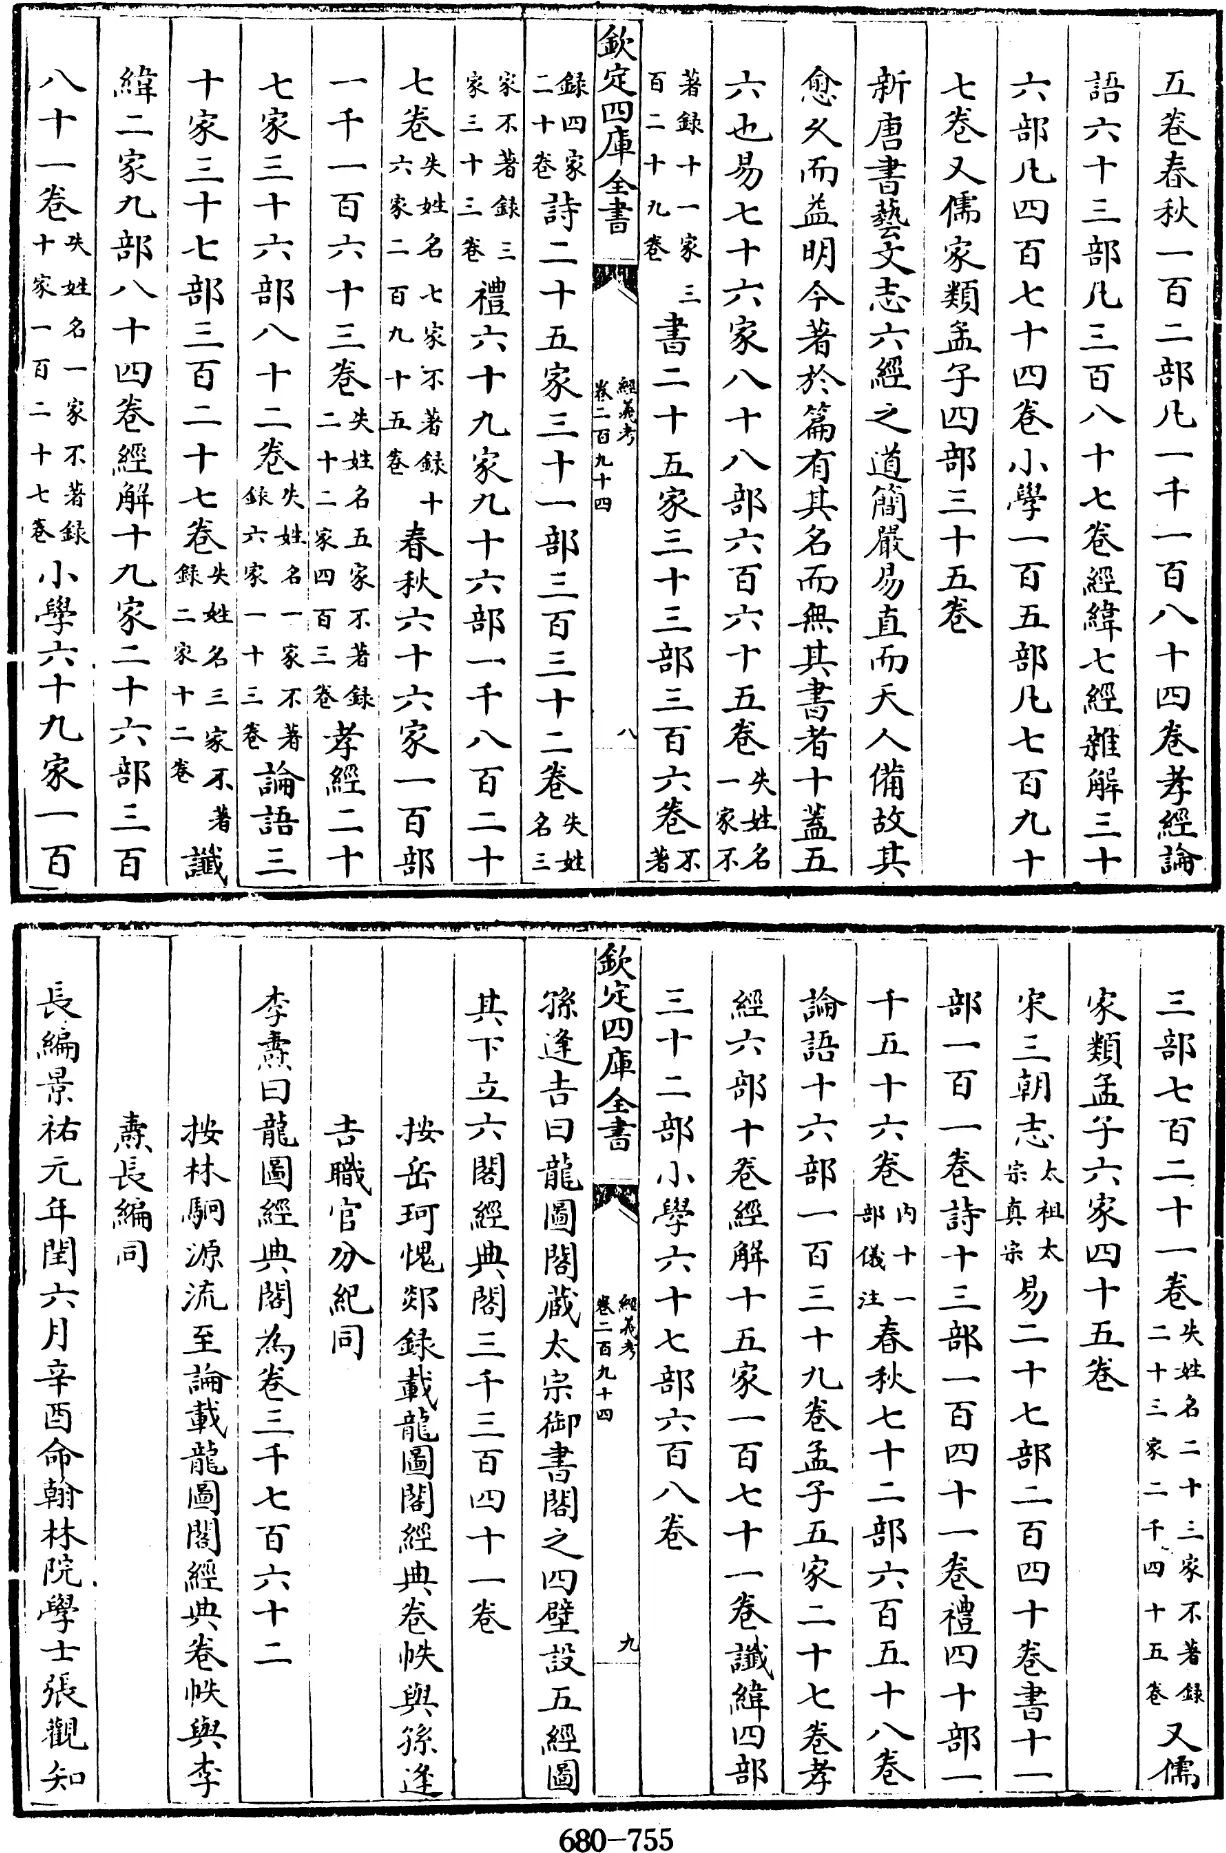 五卷春秋一百二部凡一千一百八十四卷孝經論
語六十三部凡三百八十七卷經緯七經雜解三十
六部凡四百七十四卷小學一百五部凡七百九十
七卷又儒家類孟子四部三十五卷
新唐書藝文志六經之道簡嚴易直而天人備故其
愈久而益明今著於篇有其名而無其書者十蓋五
六也易七十六家八十八部六百六十五卷失姓名一家不
著録十一家三百二十九卷書二十五家三十三部三百六卷不著
欽定四庫全書 經義考 卷二百九十四 八
録四家二十卷詩二十五家三十一部三百三十二卷失姓名三
家不著録三家三十三卷禮六十九家九十六部一千八百二十
七卷失姓名七家不著録十六家二百九十五卷春秋六十六家一百部
一千一百六十三卷失姓名五家不著録二十二家四百三卷孝經二十
七家三十六部八十二卷失姓名一家不著録六家一十三卷論語三
十家三十七部三百二十七卷失姓名三家不著録二家十二卷讖
緯二家九部八十四卷經解十九家二十六部三百
八十一卷失姓名一家不著録十家一百二十七卷小學六十九家一百
三部七百二十一卷失姓名二十三家不著録二十三家二千四十五卷又儒
家類孟子六家四十五卷
宋三朝志太祖太宗真宗易二十七部二百四十卷書十一
部一百一卷詩十三部一百四十一卷禮四十部一
千五十六卷内十一部儀注春秋七十二部六百五十八卷
論語十六部一百三十九卷孟子五家二十七卷孝
經六部十卷經解十五家一百七十一卷讖緯四部
三十二部小學六十七部六百八卷
欽定四庫全書 經義考 卷二百九十四 九
孫逢吉曰龍圖閣蔵太宗御書閣之四壁設五經圖
其下立六閣經典閣三千三百四十一卷
按岳珂愧郯録載龍圖閣經典卷帙與孫逢
吉職官分紀同
李燾曰龍圖經典閣為卷三千七百六十二
按林駉源流至論載龍圖閣經典卷帙與李
燾長編同
長編景祐元年閏六月辛酉命翰林院學士張觀知
680-755